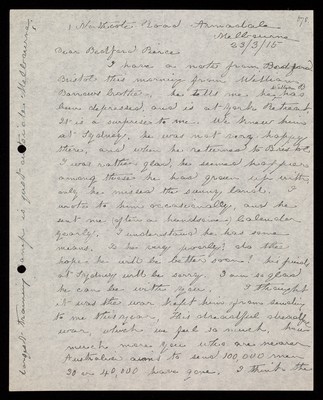 178.
1 Northcote Road Armadale
Melbourne
23/3/15
Dear Bedford Pierce
I have a note from Bedford
Bristol this morning from William
Barrow's brother. he tells me he has
been depressed, and is at York Retreat
It is a surprise to me. We knew him
at Sydney, he was not very happy
there, and when he returned to Bristol
I was rather glad, he seemed happier
among those he has grown up with
only he misses the sunny land. I
wrote to him occasionally, and he
sent me often a handsome Calendar
yearly. I understand he has some
means. Is he very poorly? do thee
hope he will be better soon? his friends
at Sydney will be sorry. I am so glad
he can be with you. I thought
it was the war kept him from sending
to me this year, this dreadful dreadful
war, which we feel so much, how
much more you who are nearer
Australia aims to send 100,000 men
30 or 40,000 have gone. I think the
largest training camp is just outside Melbourne